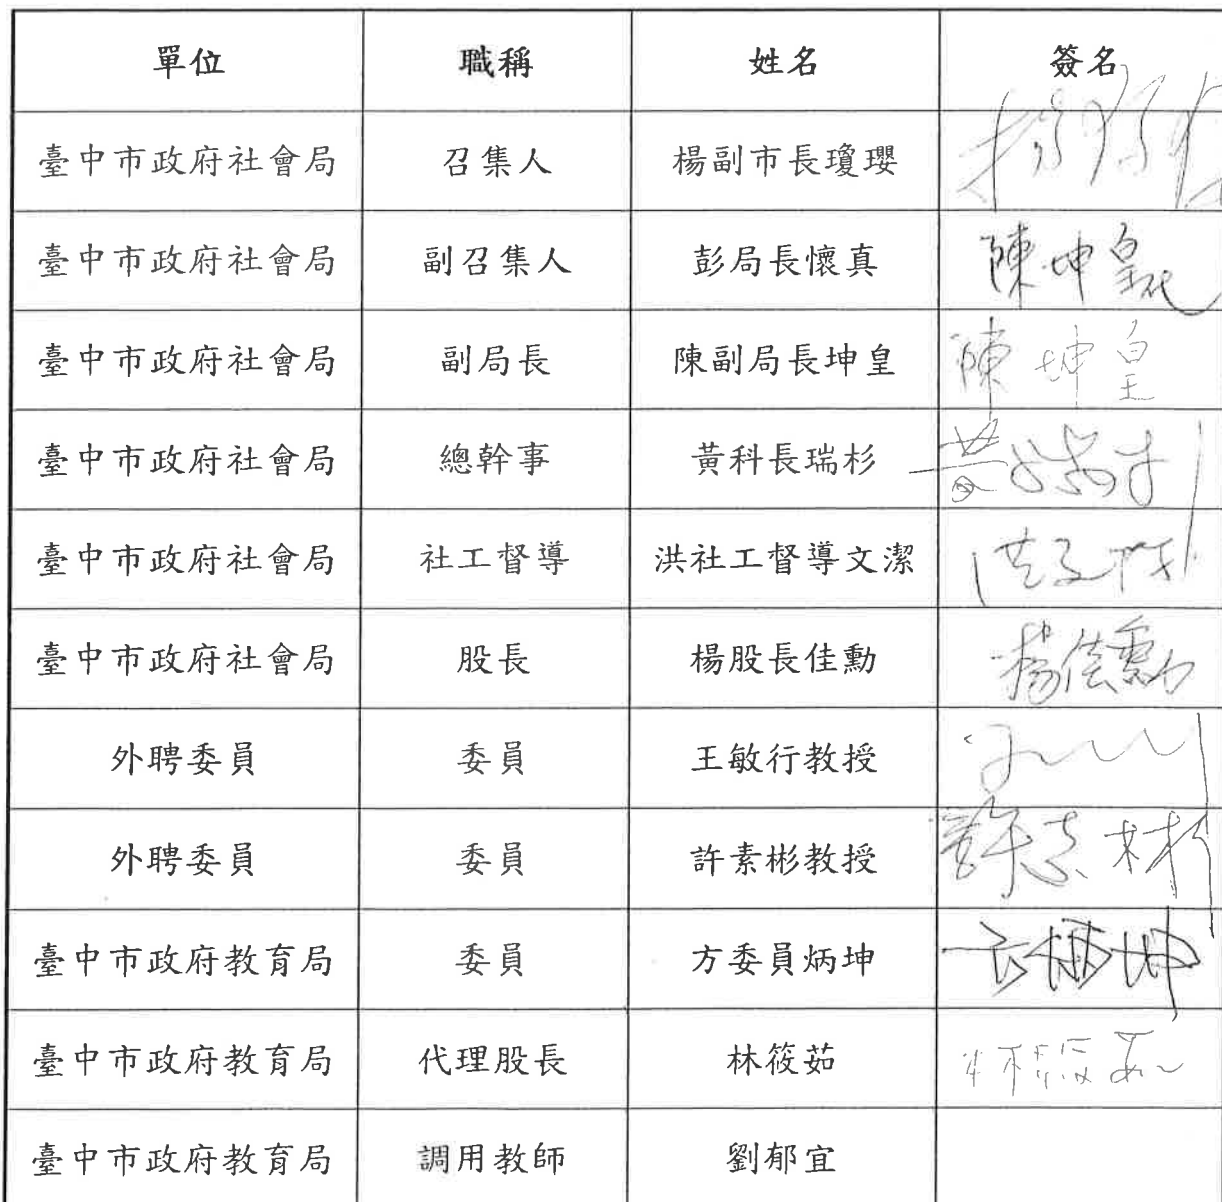 單位 職稱 姓名 簽名
臺中市政府社會局 召集人 楊副市長瓊瓔
臺中市政府社會局 副召集人 彭局長懷真 陳坤皇代
臺中市政府社會局 副局長 陳副局長坤皇 陳坤皇
臺中市政府社會局 總幹事 黃科長瑞杉
臺中市政府社會局 社工督導 洪社工督導文潔
臺中市政府社會局 股長 楊股長佳勳 楊佳勳
外聘委員 委員 王敏行教授
外聘委員 委員 許素彬教授
臺中市政府教育局 委員 方委員炳坤 方炳坤
臺中市政府教育局 代理股長 林筱茹 林筱茹
臺中市政府教育局 調用教師 劉郁宜